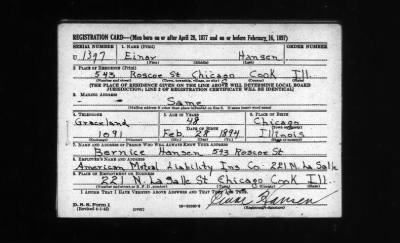 REGISTRATION CARD—(Men born on or after April 28, 1877 and on or before February 16, 1897)
SERIAL NUMBER 1. NAME (Print) ORDER NUMBER
U 1397 Einar Hansen
(First) (Middle) (Last)
2. PLACE OF RESIDENCE (Print)
543 Roscoe St Chicago Cook Ill.
(Number and street) (Town, township, village, or city) (County) (State)
[THE PLACE OF RESIDENCE GIVEN ON THE LINE ABOVE WILL DETERMINE LOCAL BOARD
JURISDICTION; LINE 2 OF REGISTRATION CERTIFICATE WILL BE IDENTICAL]
3. MAILING ADDRESS
Same
[Mailing address if other than place indicated on line 2. If same insert word same]
4. TELEPHONE 5. AGE IN YEARS 6. PLACE OF BIRTH
Graceland 48 Chicago
DATE OF BIRTH (Town or county)
1091 Feb. 28 1894 Illinois
(Mo.) (Day) (Yr.) (State or country)
7. NAME AND ADDRESS OF PERSON WHO WILL ALWAYS KNOW YOUR ADDRESS
Bernice Hansen 543 Roscoe St
8. EMPLOYER'S NAME AND ADDRESS
American Motal Liability Ins Co. 221 N. La Salle
9. PLACE OF EMPLOYMENT OR BUSINESS
221 N. La Salle St Chicago Cook Ill.
(Number and street or R. F. D. number) (Town) (County) (State)
I AFFIRM THAT I HAVE VERIFIED ABOVE ANSWERS AND THAT THEY ARE TRUE.
D. S. S. Form 1
(Revised 4-1-42) (over)
Einar Hansen
(Registrant's signature)